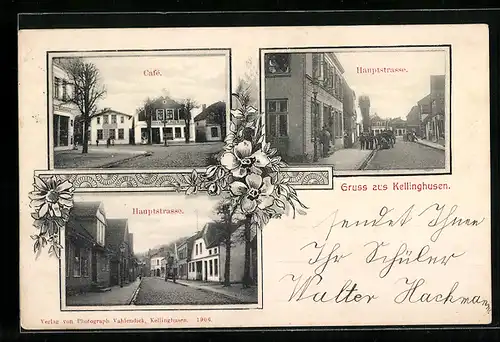 Café.
Hauptstrasse.
Gruss aus Kellinghusen.
Hauptstrasse.
sendet Ihnen
Ihr Schüler
Walter Hachmann
Verlag von Photograph Vahlendick, Kellinghusen. 1904.